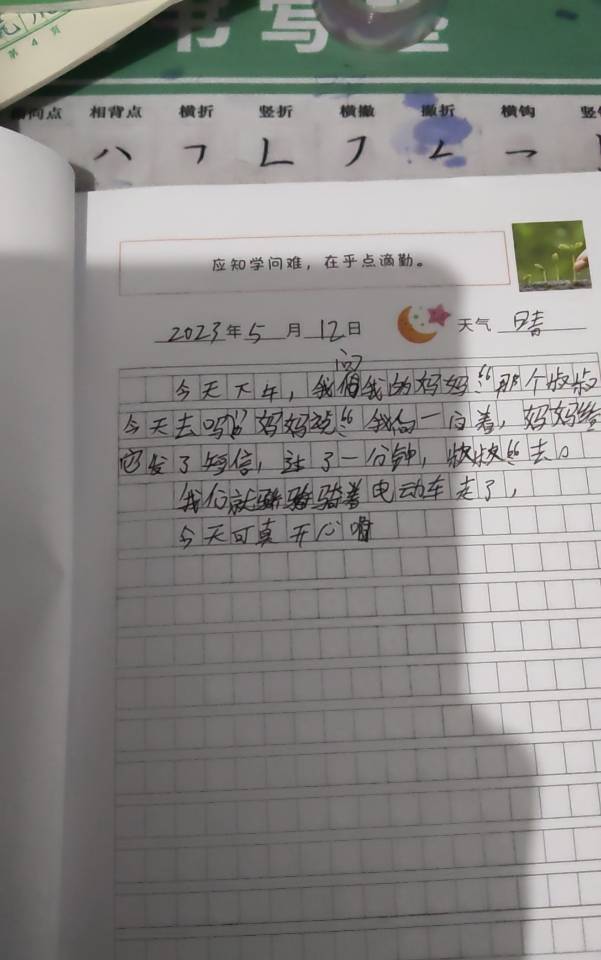 第4页
书写
相背点 横折 竖折 横撇 撇折 横钩
应知学问难，在乎点滴勤。
2023年5月12日 天气 晴
问
今天下午，我们我的妈妈“那个叔叔
今天去吗”妈妈说“我问一问看，妈妈给
它发了短信，过了一分钟，叔叔“去。
我们就骑着电动车走了，
今天可真开心啊